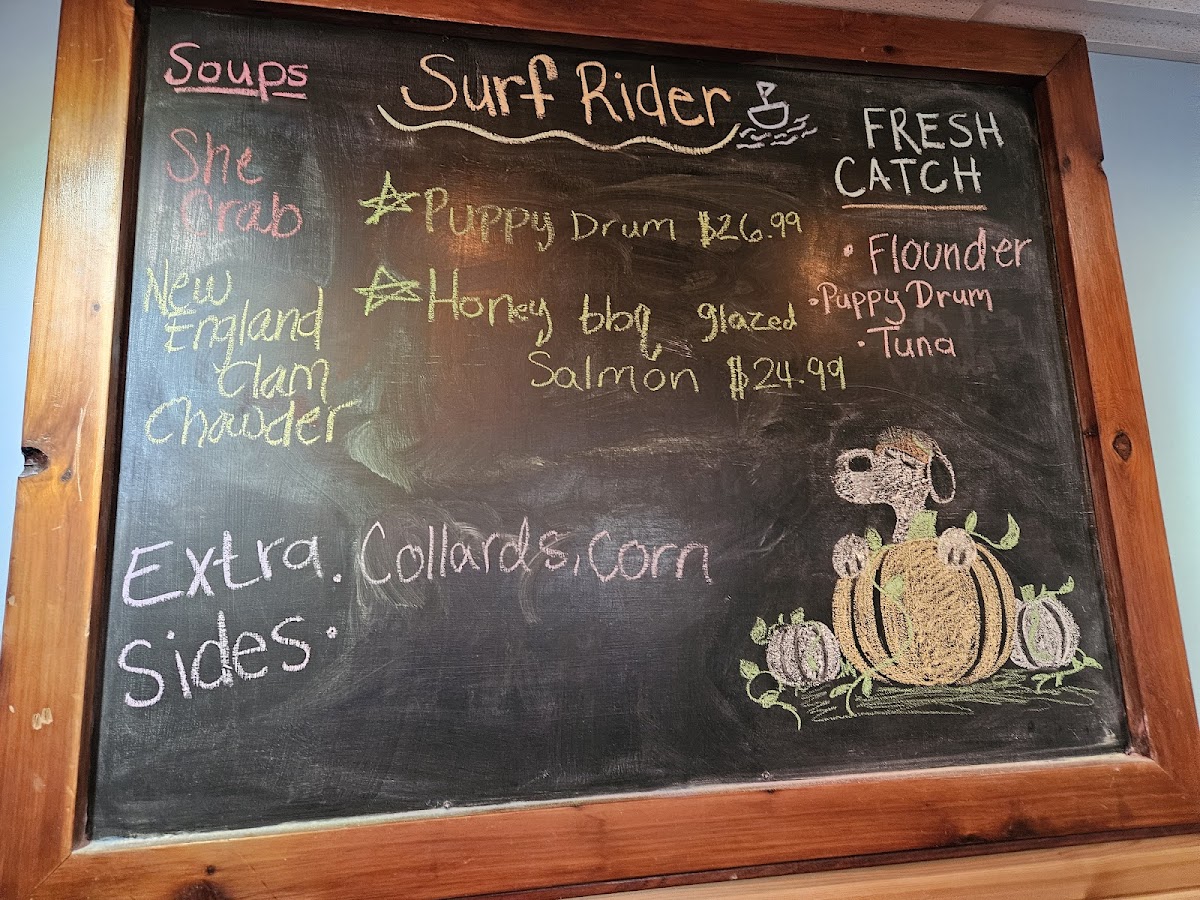 Surf Rider
Soups
She
Crab
New
England
Clam
Chowder
Puppy Drum $26.99
Honey bbq glazed
Salmon $24.99
FRESH
CATCH
• Flounder
• Puppy Drum
• Tuna
Extra : Collards, Corn
Sides